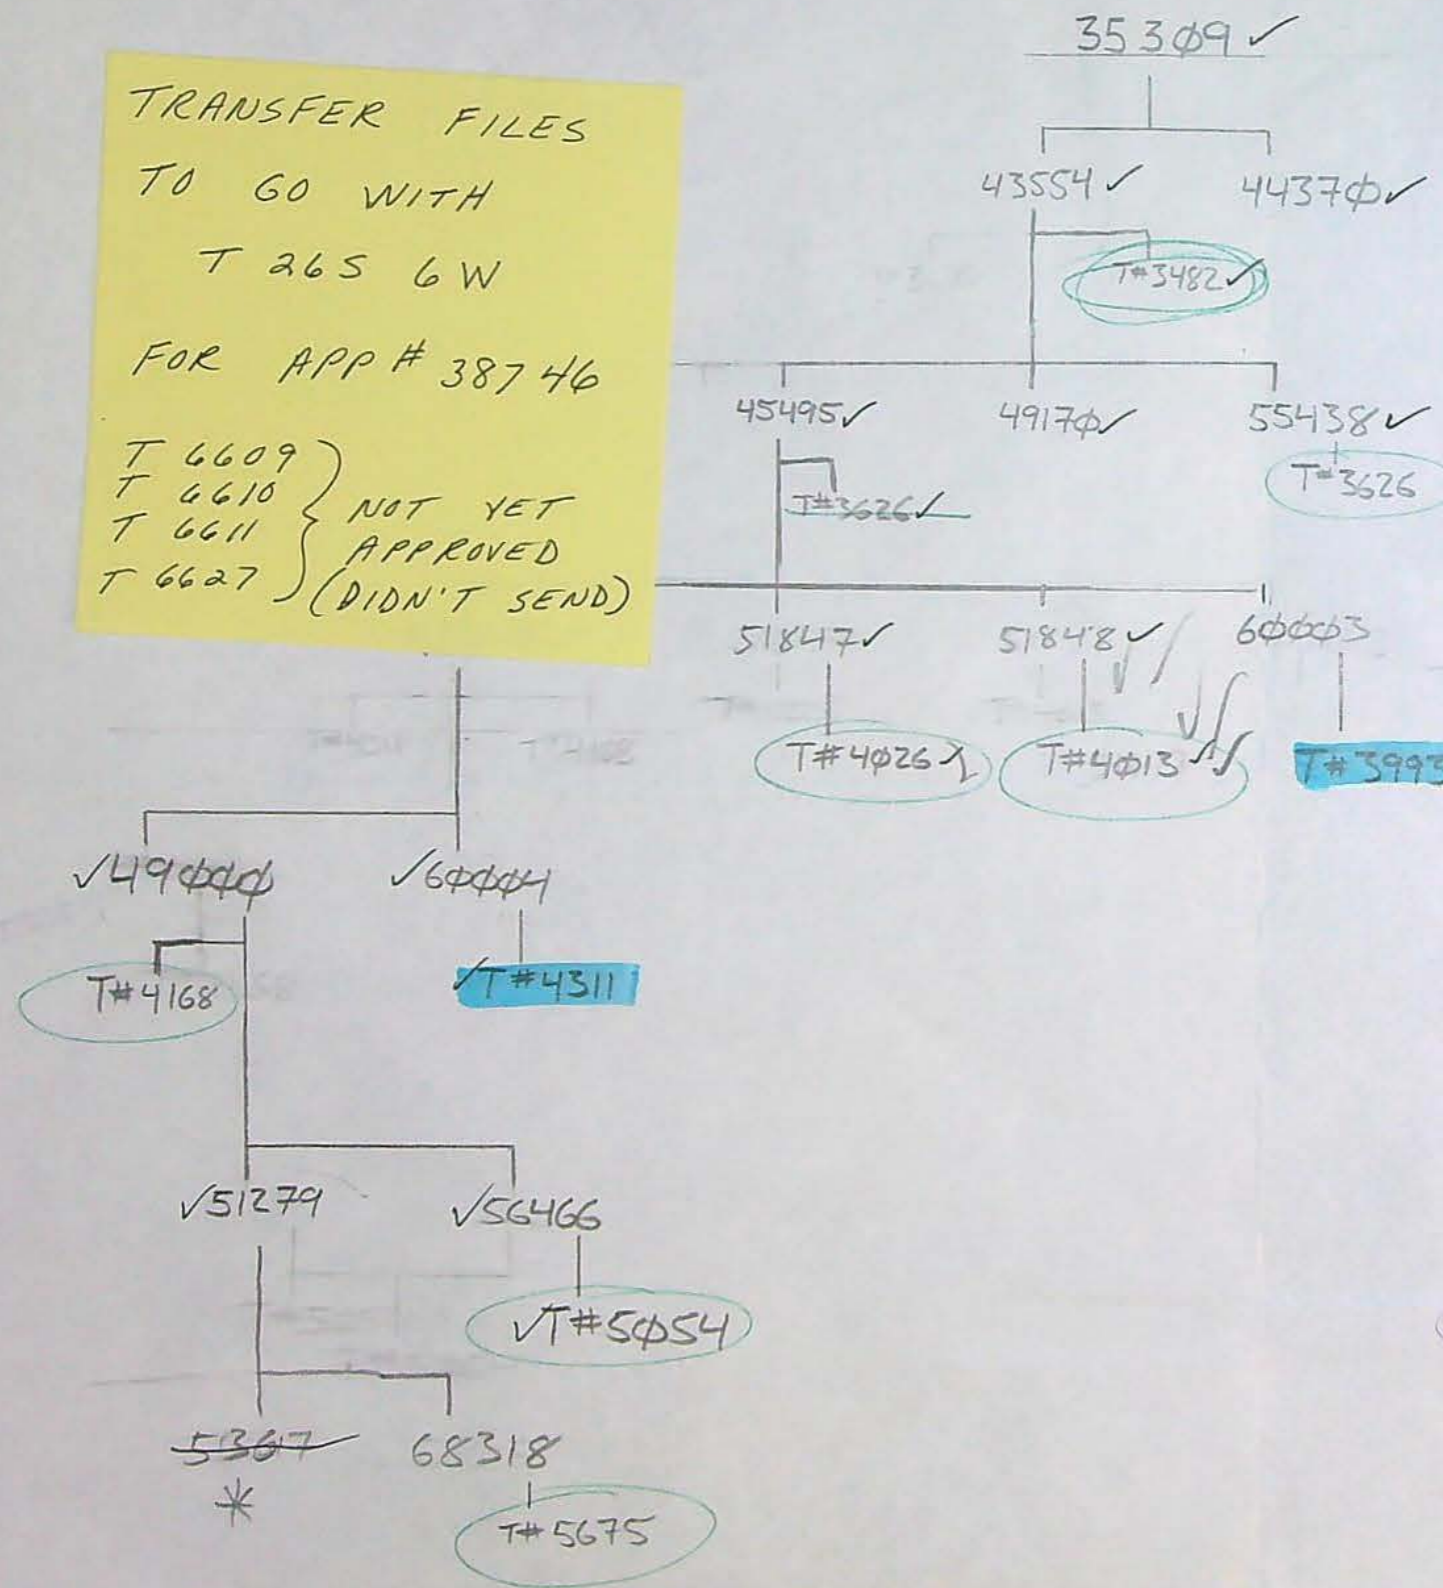 35309 ✓
TRANSFER FILES
TO GO WITH
T 26S 6W
FOR APP # 38746
T 6609
T 6610
T 6611
T 6627
NOT YET
APPROVED
(DIDN'T SEND)
43554 ✓ 44370 ✓
T#3482 ✓
45495 ✓ 49170 ✓ 55438 ✓
T#3626 ✓ T#3626
51847 ✓ 51848 ✓ 60003
T#4026 ✓ T#4013 ✓✓ T#3993
✓49000 ✓60004
T#4168 ✓T#4311
✓51279 ✓56466
✓T#5054
68318
*
T#5675